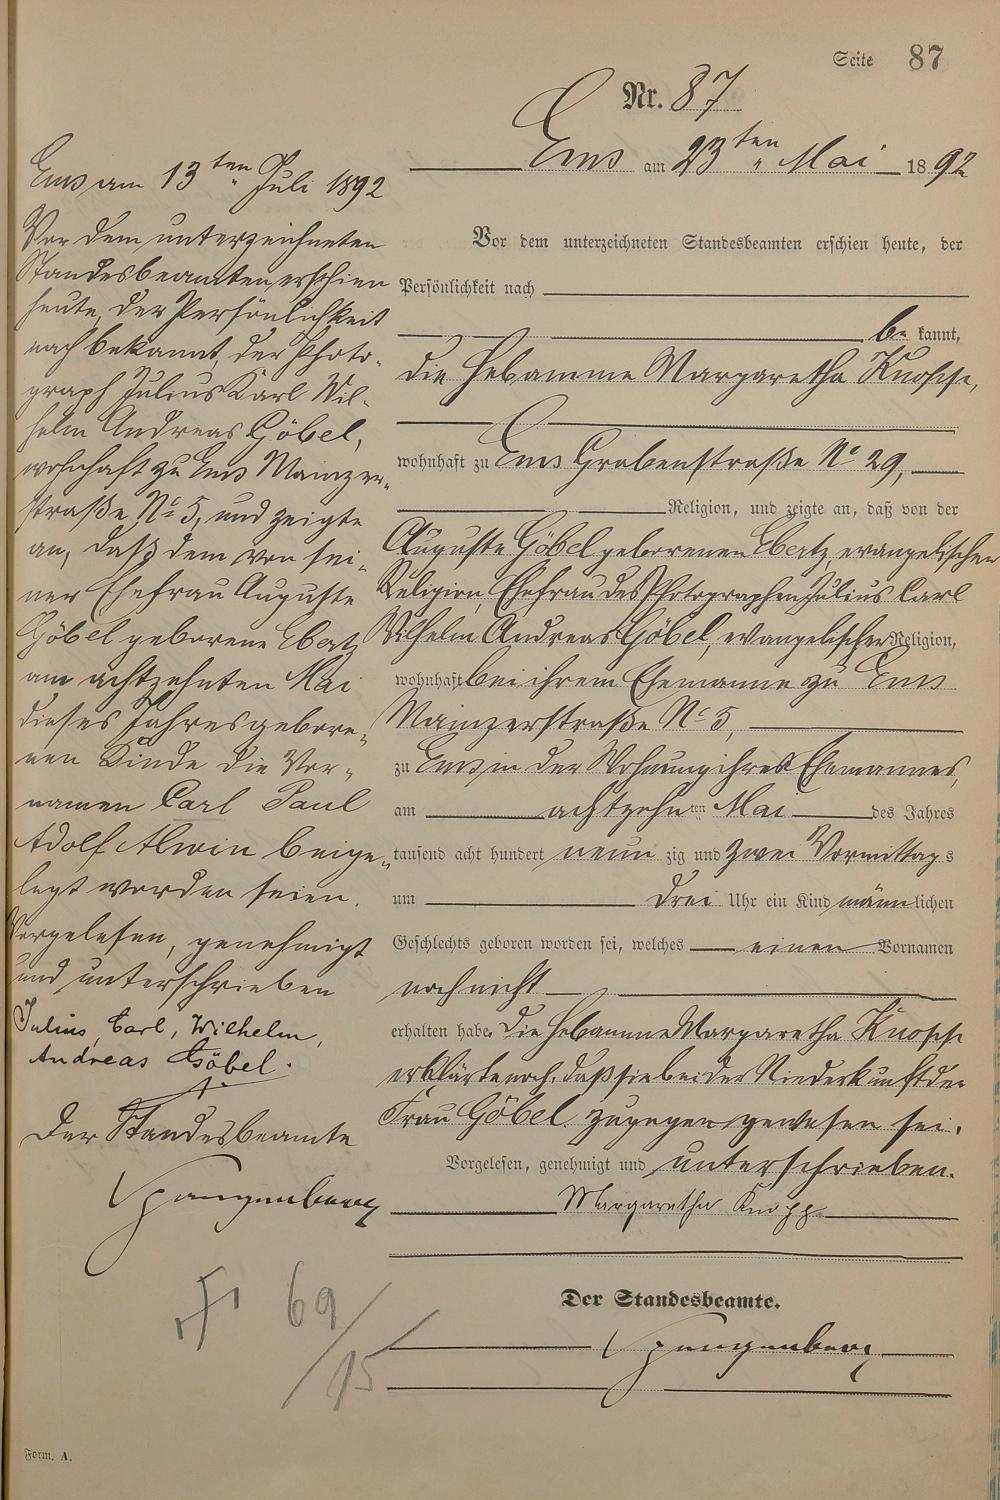 Seite 87
Nr. 87
Ems am 23ten Mai 1892
Vor dem unterzeichneten Standesbeamten erschien heute, der
Persönlichkeit nach
be kannt,
die Hebamme Margaretha Knopp,
wohnhaft zu Ems Grabenstraße No 29,
Religion, und zeigte an, daß von der
Auguste Göbel geborenen Ebertz, evangelischer
Religion, Ehefrau des Photographen Julius Carl
Wilhelm Andreas Göbel, evangelischer Religion,
wohnhaft bei ihrem Ehemanne zu Ems
Mainzerstraße No 5,
zu Ems in der Wohnung ihres Ehemannes,
am achtzehnten Mai des Jahres
tausend acht hundert neunzig und zwei Vormittags
um drei Uhr ein Kind männlichen
Geschlechts geboren worden sei, welches einen Vornamen
noch nicht
erhalten habe. Die Hebamme Margaretha Knopp
erklärte noch, daß sie bei der Niederkunft der
Frau Göbel zugegen gewesen sei.
Vorgelesen, genehmigt und unterschrieben.
Margaretha Knopp
Der Standesbeamte.
Spangenberg
Ems am 13ten Juli 1892
Vor dem unterzeichneten
Standesbeamten erschien
heute, der Persönlichkeit
nach bekannt, der Photo-
graph Julius Karl Wil-
helm Andreas Göbel,
wohnhaft zu Ems Mainzer-
straße No 5, und zeigte
an, daß dem von sei-
ner Ehefrau Auguste
Göbel geborene Ebertz
am achtzehnten Mai
dieses Jahres gebore-
nen Kinde die Vor-
namen Carl Paul
Adolf Alwin beige-
legt worden seien.
Vorgelesen, genehmigt
und unterschrieben
Julius, Carl, Wilhelm,
Andreas Göbel.
Der Standesbeamte
Spangenberg
69/15
Form. A.